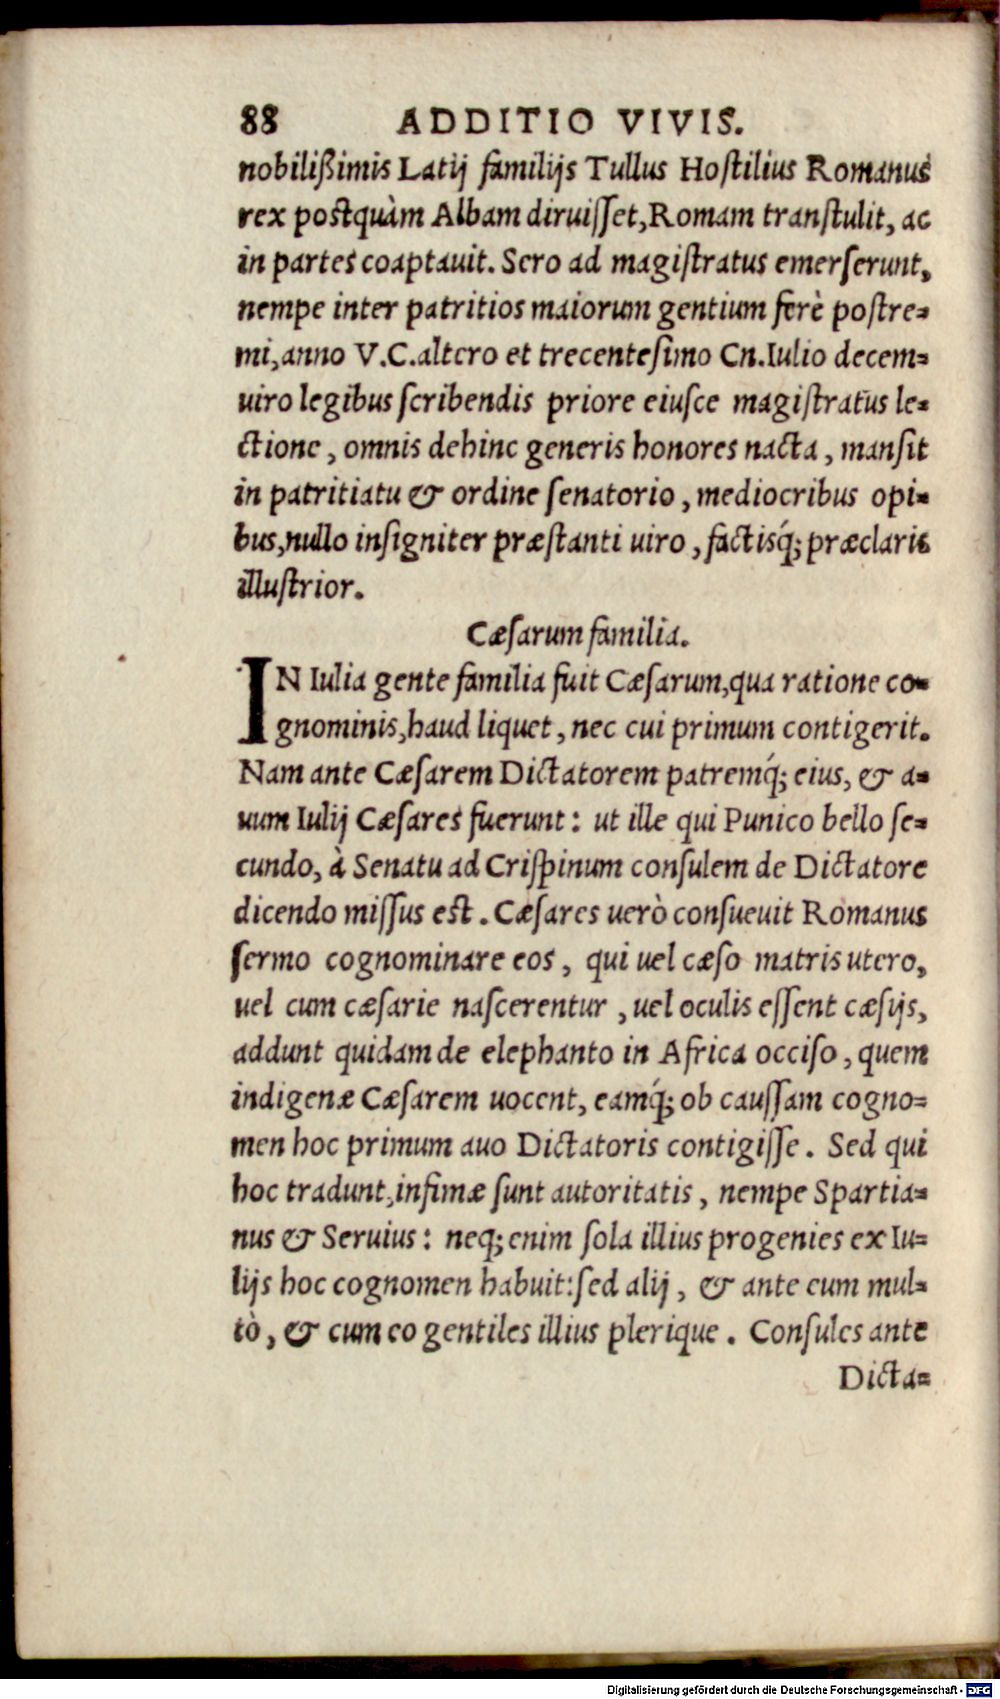 88 ADDITIO VIVIS.
nobilißimis Latij familijs Tullus Hoſtilius Romanus
rex poſtquàm Albam diruiſſet, Romam tranſtulit, ac
in partes coaptauit. Sero ad magiſtratus emerſerunt,
nempe inter patritios maiorum gentium ferè poſtre=
mi, anno V.C. altero et trecenteſimo Cn. Iulio decem=
uiro legibus ſcribendis priore eiuſce magiſtratus le=
ctione, omnis dehinc generis honores nacta, manſit
in patritiatu & ordine ſenatorio, mediocribus opi=
bus, nullo inſigniter præſtanti uiro, factisq́; præclaris
illuſtrior.
Cæſarum familia.
IN Iulia gente familia fuit Cæſarum, qua ratione co=
gnominis, haud liquet, nec cui primum contigerit.
Nam ante Cæſarem Dictatorem patremq́; eius, & a=
uum Iulij Cæſares fuerunt: ut ille qui Punico bello ſe=
cundo, à Senatu ad Criſpinum conſulem de Dictatore
dicendo miſſus eſt. Cæſares uerò conſueuit Romanus
ſermo cognominare eos, qui uel cæſo matris utero,
uel cum cæſarie naſcerentur, uel oculis eſſent cæſijs,
addunt quidam de elephanto in Africa occiſo, quem
indigenæ Cæſarem uocent, eamq́; ob cauſſam cogno=
men hoc primum auo Dictatoris contigiſſe. Sed qui
hoc tradunt, infimæ ſunt autoritatis, nempe Spartia=
nus & Seruius: neq; enim ſola illius progenies ex Iu=
lijs hoc cognomen habuit: ſed alij, & ante eum mul=
tò, & cum eo gentiles illius plerique. Conſules ante
Dicta=
Digitalisierung gefördert durch die Deutsche Forschungsgemeinschaft - DFG